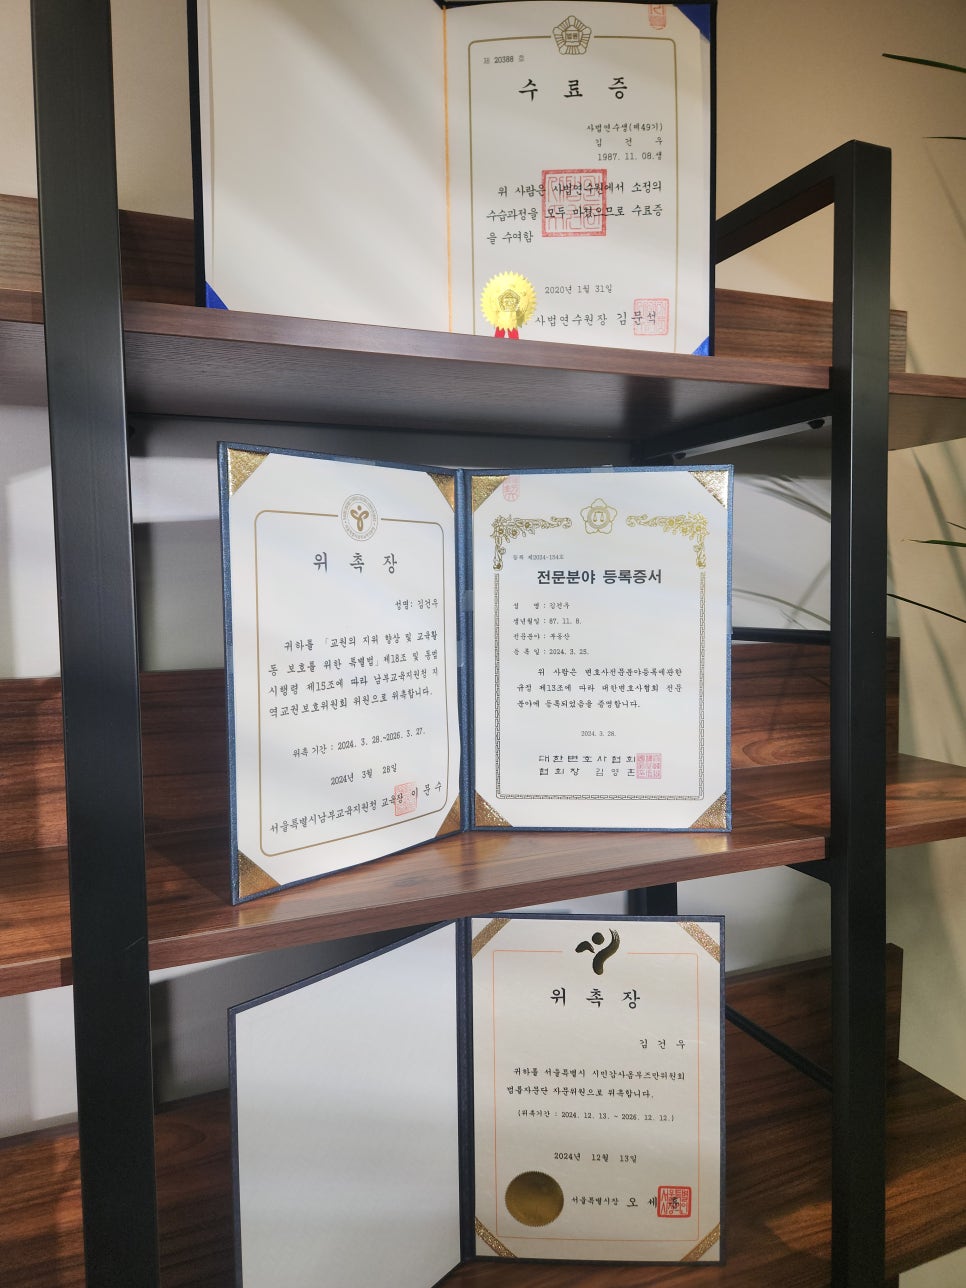 제 20388 호
수 료 증
사법연수생(제49기)
김 건 우
1987. 11. 08.생
위 사람은 사법연수원에서 소정의
수습과정을 모두 마쳤으므로 수료증
을 수여함
2020년 1월 31일
사법연수원장 김문석
위 촉 장
성명: 김건우
귀하를 「교원의 지위 향상 및 교육활
동 보호를 위한 특별법」제18조 및 동법
시행령 제15조에 따라 남부교육지원청 지
역교권보호위원회 위원으로 위촉합니다.
위촉기간 : 2024. 3. 28.~2026. 3. 27.
2024년 3월 28일
서울특별시남부교육지원청 교육장 이 문 수
등록 제2024-154호
전문분야 등록증서
성 명 : 김건우
생년월일 : 87. 11. 8.
전문분야 : 부동산
등 록 일 : 2024. 3. 25.
위 사람은 변호사전문분야등록에관한
규정 제13조에 따라 대한변호사협회 전문
분야에 등록되었음을 증명합니다.
2024. 3. 28.
대한변호사협회
협회장 김영훈
위 촉 장
김 건 우
귀하를 서울특별시 시민감사옴부즈만위원회
법률자문단 자문위원으로 위촉합니다.
(위촉기간 : 2024. 12. 13. ~ 2026. 12. 12.)
2024년 12월 13일
서울특별시장 오 세 훈